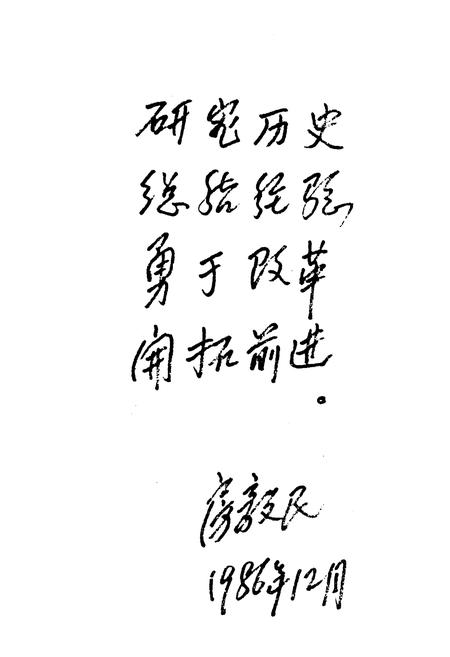 研究历史
总结经验
勇于改革
開拓前进。
房毅民
1986年12月